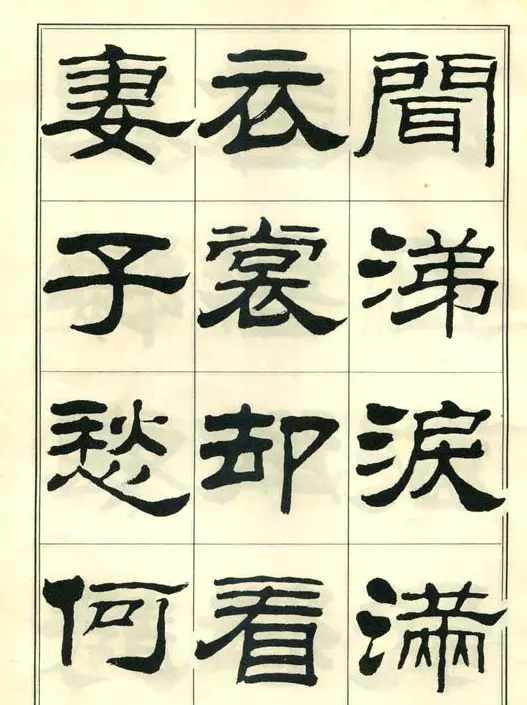 聞涕淚滿
衣裳却看
妻子愁何